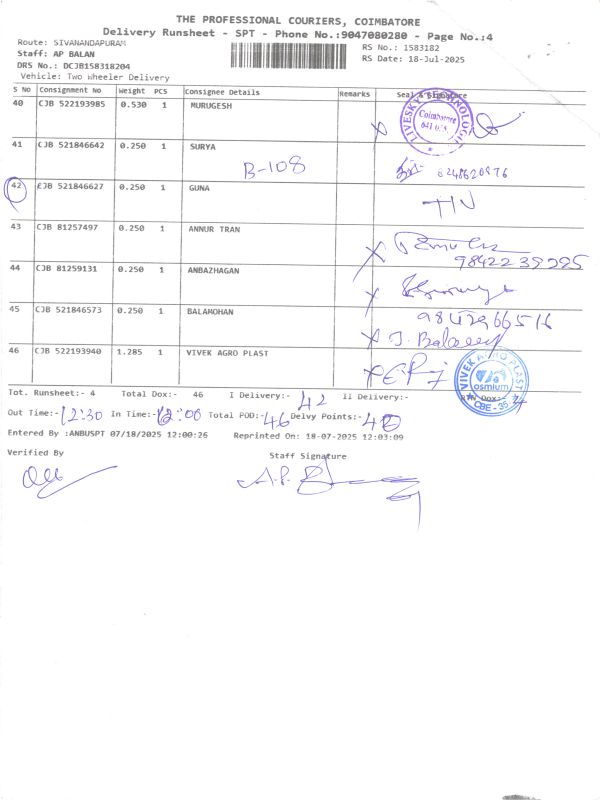 THE PROFESSIONAL COURIERS, COIMBATORE
Delivery Runsheet - SPT - Phone No.:9047080280 - Page No.:4
Route: SIVANANDAPURAM
RS No.: 1583182
Staff: AP BALAN
RS Date: 18-Jul-2025
DRS No.: DCJB158318204
Vehicle: Two Wheeler Delivery
S No Consignment No Weight PCS Consignee Details Remarks Seal & Signature
40 CJB 522193985 0.530 1 MURUGESH
LIVESKY TECHNOLOGI
Coimbatore
641 0
41 CJB 521846642 0.250 1 SURYA
B-108
42 CJB 521846627 0.250 1 GUNA
43 CJB 81257497 0.250 1 ANNUR TRAN
9842239295
44 CJB 81259131 0.250 1 ANBAZHAGAN
45 CJB 521846573 0.250 1 BALAMOHAN
J. Bala
46 CJB 522193940 1.285 1 VIVEK AGRO PLAST
VIVEK AGRO PLAST
osmium
CBE - 35
Tot. Runsheet:- 4 Total Dox:- 46 I Delivery:- 42 Ii Delivery:- RTN Dox:-
Out Time:- 12:30 In Time:- Total POD:- 46 Delvy Points:-
Entered By :ANBUSPT 07/18/2025 12:00:26 Reprinted On: 18-07-2025 12:03:09
Verified By
Staff Signature